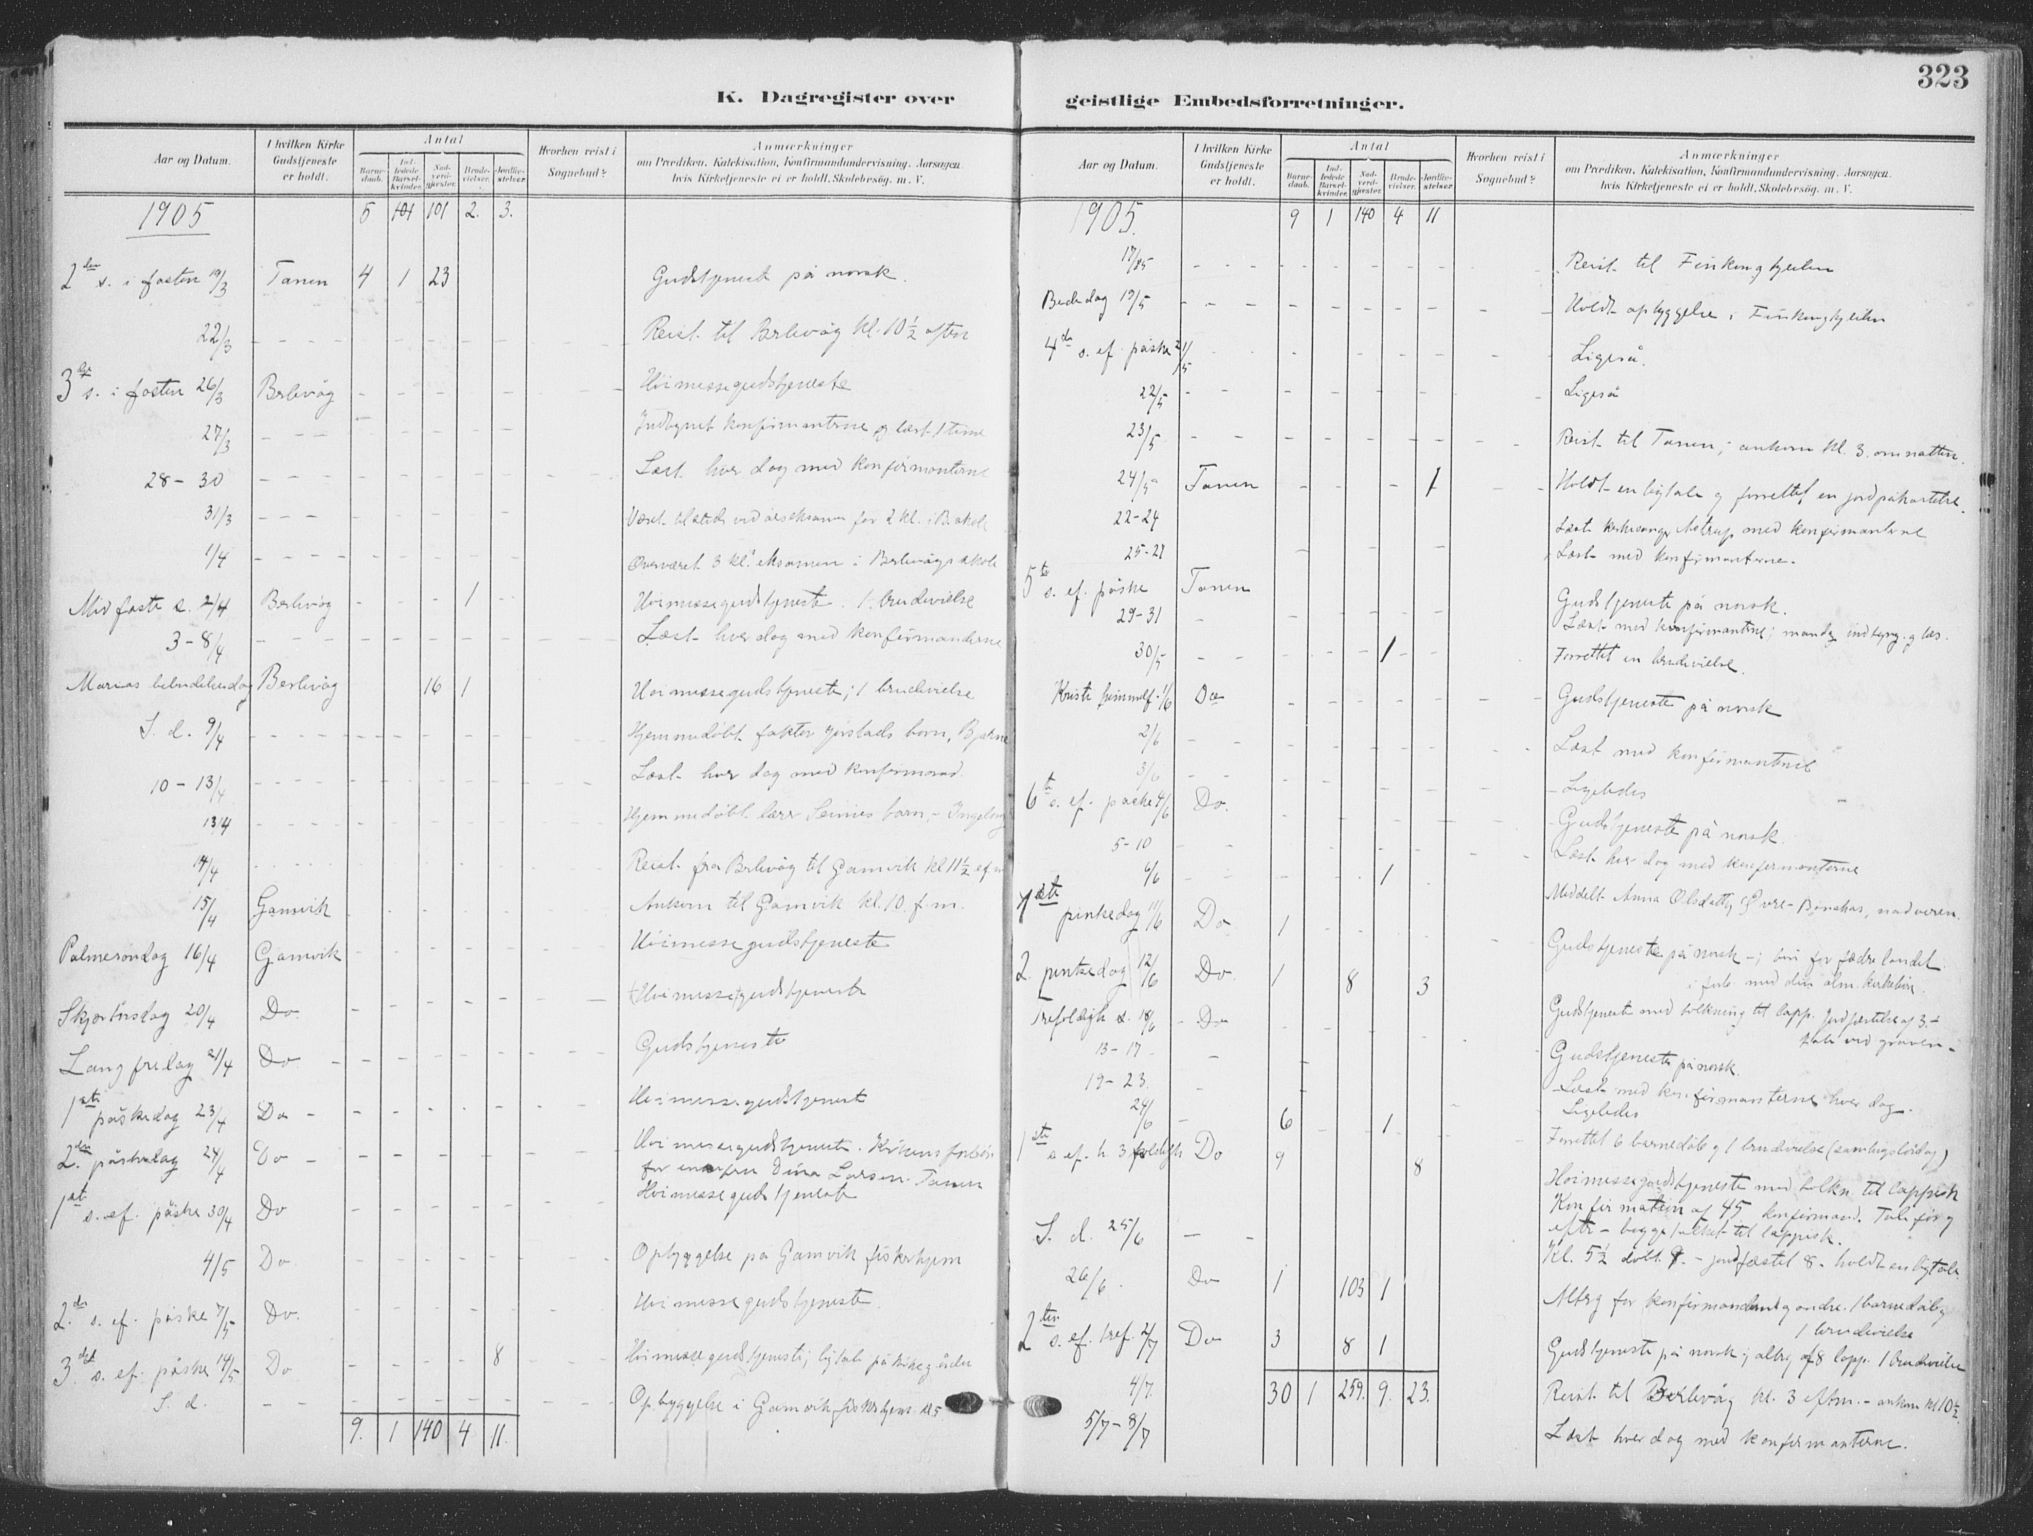 323
K. Dagregister over geistlige Embedsforretninger.
Aar og Datum.
I hvilken Kirke Gudstjeneste er holdt.
Antal
Barnedaab.
Indledede Barselkvinder.
Nadverdgjester.
Brudevielser.
Jordfæstelser.
Hvorhen reist i Sognebud?
Anmærkninger
om Prædiken, Katekisation, Konfirmandundervisning, Aarsagen,
hvis Kirketjeneste ei er holdt, Skolebesøg. m. V.
1905 5 101 101 2. 3.
2den s. i fasten 19/3 Tanen 4 1 23 Gudstjenest på norsk.
22/3 Reist til Berlevåg kl. 10½ aften
3die s. i fasten 26/3 Berlevåg Høimessegudstjeneste
27/3 Indtegnet konfirmanterne og læst 1 time
28-30 Læst hver dag med konfirmanterne
31/3 Været tilstede ved årseksamen for 2 kl. i B. skole
1/4 Overværet 3 kl.' eksamen i Berlevågs skole
Midfaste s. 2/4 Berlevåg 1 Høimessegudstjeneste. 1 brudevielse
3-8/4 Læst hver dag med konfirmanderne
Marias bebudelsesdag Berlevåg 16 1 Høimessegudstjeneste; 1 brudevielse
S. d. 9/4 Hjemmedøbt faktor barn,
10-13/4 Læst hver dag med konfirmand.
13/4 Hjemmedøbt lærer barn,
14/4 Reist fra Berlevåg til Gamvik kl 11½ efm
15/4 Gamvik Ankom til Gamvik kl. 10 f. m.
Palmesøndag 16/4 Gamvik Høimessegudstjeneste
Skjærtorsdag 20/4 Do. Høimessegudstjeneste
Langfredag 21/4 Do Gudstjeneste
1ste påskedag 23/4 Do Høimessegudstjenest
2den påskedag 24/4 Do Høimessegudstjeneste. Kirkens forbøn
for enkefru Dina Larsen Tanen
1ste s. ef. påske 30/4 Do Høimessegudstjeneste
4/5 Do Opbyggelse på Gamvik fiskerhjem
2den s. ef. påske 7/5 Do. Høimessegudstjeneste.
3die s. ef. påske 14/5 Do 8 Høimessegudstjeneste; ligtale på kirkegården
S. d. Opbyggelse i Gamvik fiskerhjem kl 5
9. 1 140 4 11.
Aar og Datum.
I hvilken Kirke Gudstjeneste er holdt.
Antal
Barnedaab.
Indledede Barselkvinder.
Nadverdgjester.
Brudevielser.
Jordfæstelser.
Hvorhen reist i Sognebud?
Anmærkninger
om Prædiken, Katekisation, Konfirmandundervisning, Aarsagen,
hvis Kirketjeneste ei er holdt, Skolebesøg. m. V.
1905. 9 1 140 4 11
17/5 Reist til Finkongkjeilen
Bededag 19/5 Holdt opbyggelse i Finkongkjeilen
4de s. ef. påske 21/5 Ligeså.
22/5 Ligeså
23/5 Reist til Tanen; ankom kl. 3. om natten.
24/5 Tanen 1 Holdt en ligtale og forrettet en jordpåkastelse.
22-24 Læst kirkesanger Astrup med konfirmanterne
25-27 Læst med konfirmanterne.
5te s. ef. påske Tanen Gudstjeneste på norsk.
29-31 Læst med konfirmantene; mandag
30/5 1 Forrettet en brudevielse.
Kristi himmelf. 1/6 Do Gudstjeneste på norsk
2/6 Læst med konfirmanterne
3/6 Ligeledes
6te s. ef. påske 4/6 Do. Gudstjeneste på norsk
5-10 Læst hver dag med konfirmanterne
6/6 1 Meddelt Anna Olsdatter nadveren.
1ste pinsedag 11/6 Do 1 Gudstjeneste på norsk -; bøn for fædrelandet
i forb. med den alm. kirkebøn.
2. pintsedag 12/6 Do 1 8 3 Gudstjeneste med tolkning til lapp. Jordfæstelse af 3.-
tale ved graven-
Trefoldigh s. 18/6 Do Gudstjeneste på norsk.
13-17 Læst med konfirmanterne hver dag.
19-23. Ligeledes
24/6 6 1 Forrettet 6 barnedåb og 1 brudevielse (samlingslørdag)
1ste s ef. h. 3foldigh Do 9 8 Høimessegudstjeneste med tolkn. til lappisk
Konfirmation af 45 konfirmand. Tale før og
efter - begge tolket til lappisk.
S. d. 25/6 Kl. 5½ døbt 9. - jordfæstet 8 - holdt en ligtale
26/6 Do 1 103 1 Altrg for konfirmander og andre. 1 barnedåb og
1 brudevielse
2den s. ef. tref. 2/7 Do 3 8 1 Gudstjeneste på norsk; altrg af 8 lapp. 1 brudevielse
4/7. 30 1 259. 9. 23. Reist til Berlevåg kl. 3 eftm. - ankom kl 10½.
5/7-8/7 Læst hver dag med konfirmanterne.